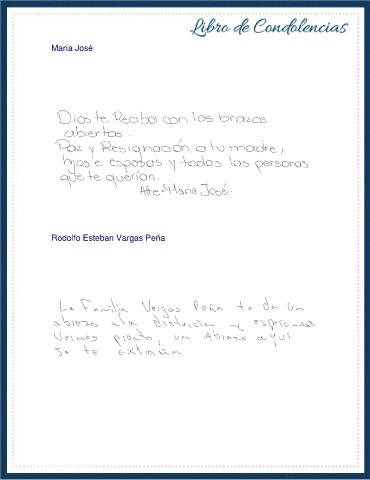 Libro de Condolencias
María José
Dios te Reciba con los brazos
abiertos...
Paz y Resignación a tu madre,
hijos e esposas y todas las personas
que te querían.
Atte. María José.
Rodolfo Esteban Vargas Peña
La Familia Vargas Peña te da un
abrazo a la distancia y esperamos
vernos pronto, un Abrazo aquí
se te extraña